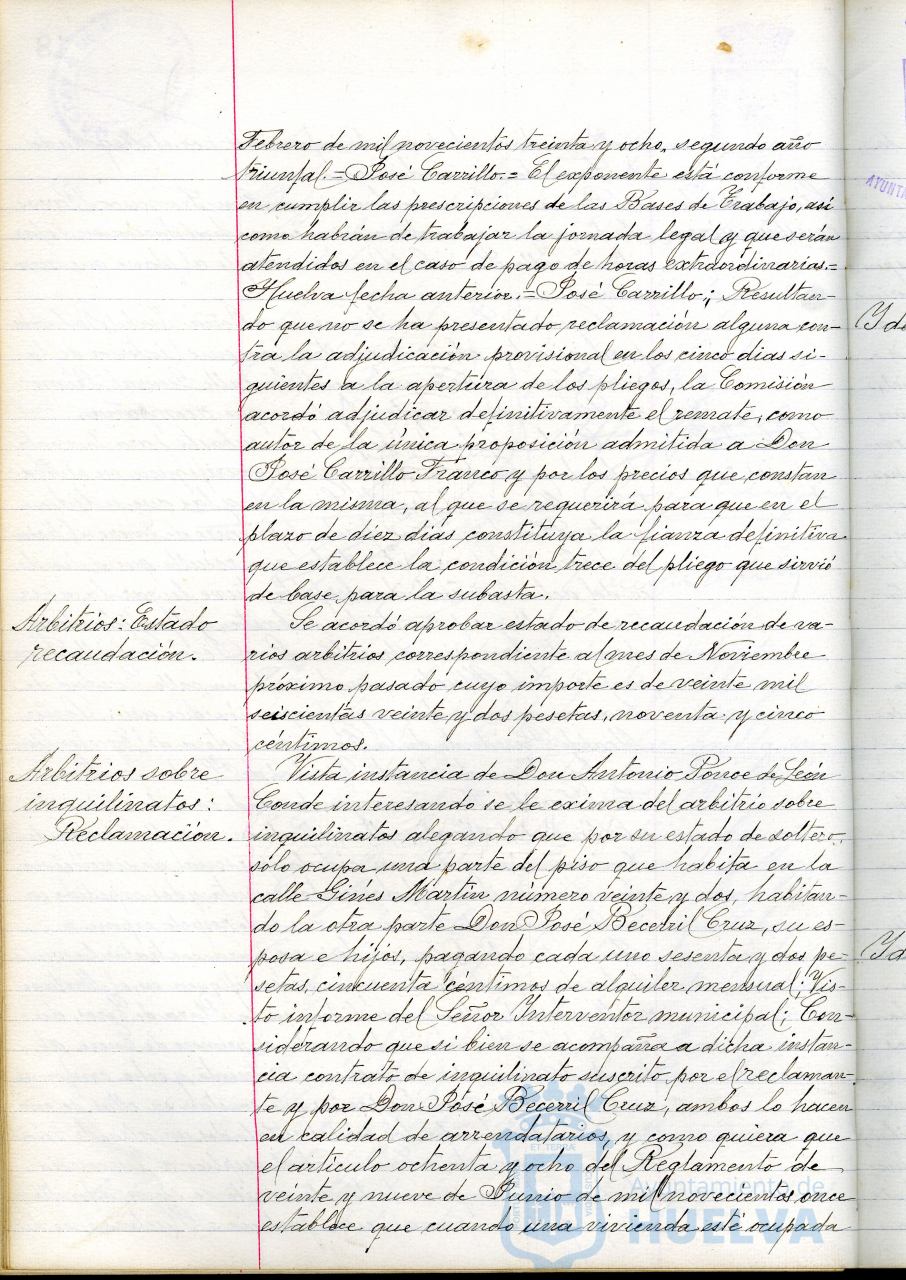 Febrero de mil novecientos treinta y ocho, segundo año
triunfal.=José Carrillo.=El exponente está conforme
en cumplir las prescripciones de las Bases de Trabajo, asi
como habrán de trabajar la jornada legal y que serán
atendidos en el caso de pago de horas extraordinarias.=
Huelva fecha anterior.=José Carrillo; Resultan-
do que no se ha presentado reclamación alguna con-
tra la adjudicación provisional en los cinco dias si-
guientes a la apertura de los pliegos, la Comisión
acordó adjudicar definitivamente el remate, como
autor de la única proposición admitida a Don
José Carrillo Franco y por los precios que constan
en la misma, al que se requerirá para que en el
plazo de diez dias constituya la fianza definitiva
que establece la condición trece del pliego que sirvió
de base para la subasta.
Arbitrios: Estado
recaudación.
Se acordó aprobar estado de recaudación de va-
rios arbitrios correspondiente al mes de Noviembre
próximo pasado cuyo importe es de veinte mil
seiscientas veinte y dos pesetas, noventa y cinco
céntimos.
Arbitrios sobre
inquilinatos:
Reclamación.
Vista instancia de Don Antonio Ponce de León
Conde interesando se le exima del arbitrio sobre
inquilinatos alegando que por su estado de soltero,
sólo ocupa una parte del piso que habita en la
calle Ginés Martín número veinte y dos, habitan-
do la otra parte Don José Becerril Cruz, su es-
posa e hijos, pagando cada uno sesenta y dos pe-
setas, cincuenta céntimos de alquiler mensual; Vis-
to informe del Señor Interventor municipal; Con-
siderando que si bien se acompaña a dicha instan-
cia contrato de inquilinato suscrito por el reclaman-
te y por Don José Becerril Cruz, ambos lo hacen
en calidad de arrendatarios, y como quiera que
el artículo ochenta y ocho del Reglamento de
veinte y nueve de Junio de mil novecientos once
establece que cuando una vivienda esté ocupada
Ayuntamiento de
HUELVA